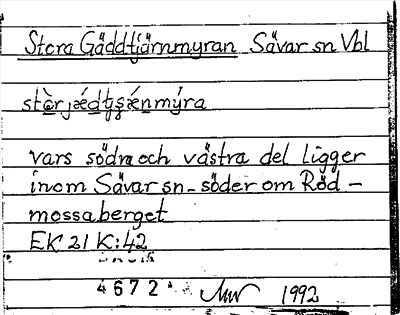 Stora Gäddtjärnmyran Sävar sn Vbl
vars södra och västra del ligger
inom Sävar sn - söder om Röd-
mossaberget
EK 21 K:42
4672
1992